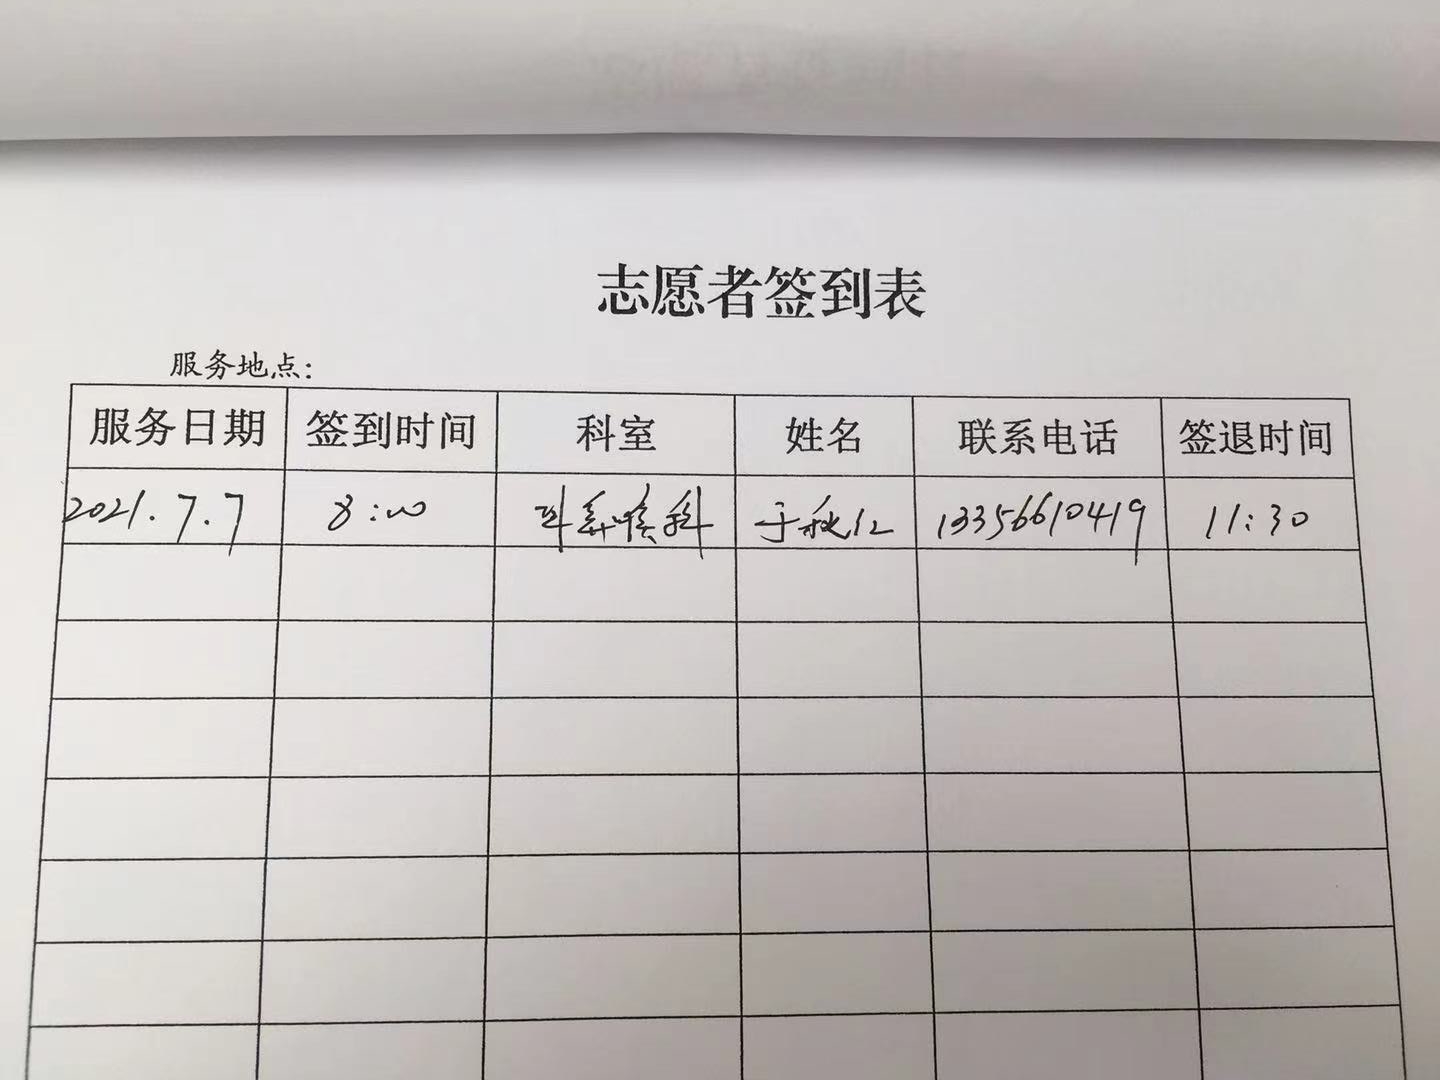 志愿者签到表
服务地点:
服务日期 签到时间 科室 姓名 联系电话 签退时间
2021.7.7 8:00 耳鼻喉科 于秋红 13356610419 11:30